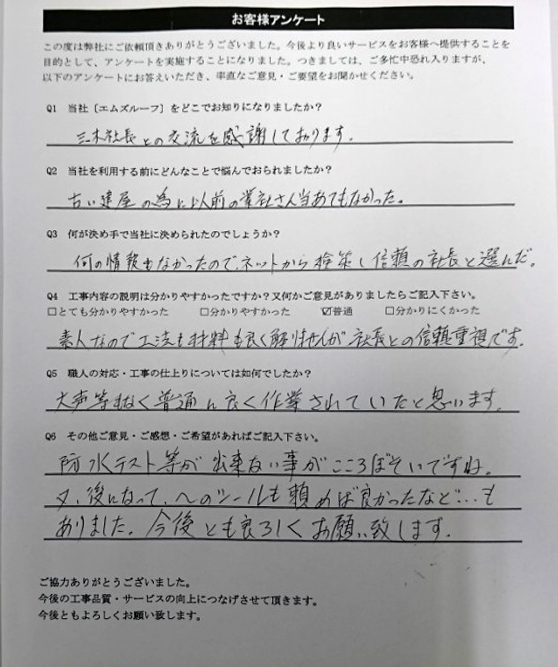 お客様アンケート
この度は弊社にご依頼頂きありがとうございました。今後より良いサービスをお客様へ提供することを
目的として、アンケートを実施することになりました。つきましては、ご多忙中恐れ入りますが、
以下のアンケートにお答えいただき、率直なご意見・ご要望をお聞かせください。
Q1 当社〔エムズルーフ〕をどこでお知りになりましたか？
三木社長との交流を感謝しております。
Q2 当社を利用する前にどんなことで悩んでおられましたか？
古い建屋の為に以前の業社さん当あてもなかった。
Q3 何が決め手で当社に決められたのでしょうか？
何の情報もなかったので、ネットから検策し信頼の社長と選んだ。
Q4 工事内容の説明は分かりやすかったですか？又何かご意見がありましたらご記入下さい。
□とても分かりやすかった □分かりやすかった ☑普通 □分かりにくかった
素人なので工法も材料も良く解りませんが社長との信頼重視です。
Q5 職人の対応・工事の仕上りについては如何でしたか？
大声等もなく普通に良く作業されていたと思います。
Q6 その他ご意見・ご感想・ご希望があればご記入下さい。
防水テスト等が出来ない事がこころぼそいですね。
又、後になって、へのシールも頼めば良かったなど…も
ありました。今後とも良ろしくお願い致します。
ご協力ありがとうございました。
今後の工事品質・サービスの向上につなげさせて頂きます。
今後ともよろしくお願い致します。